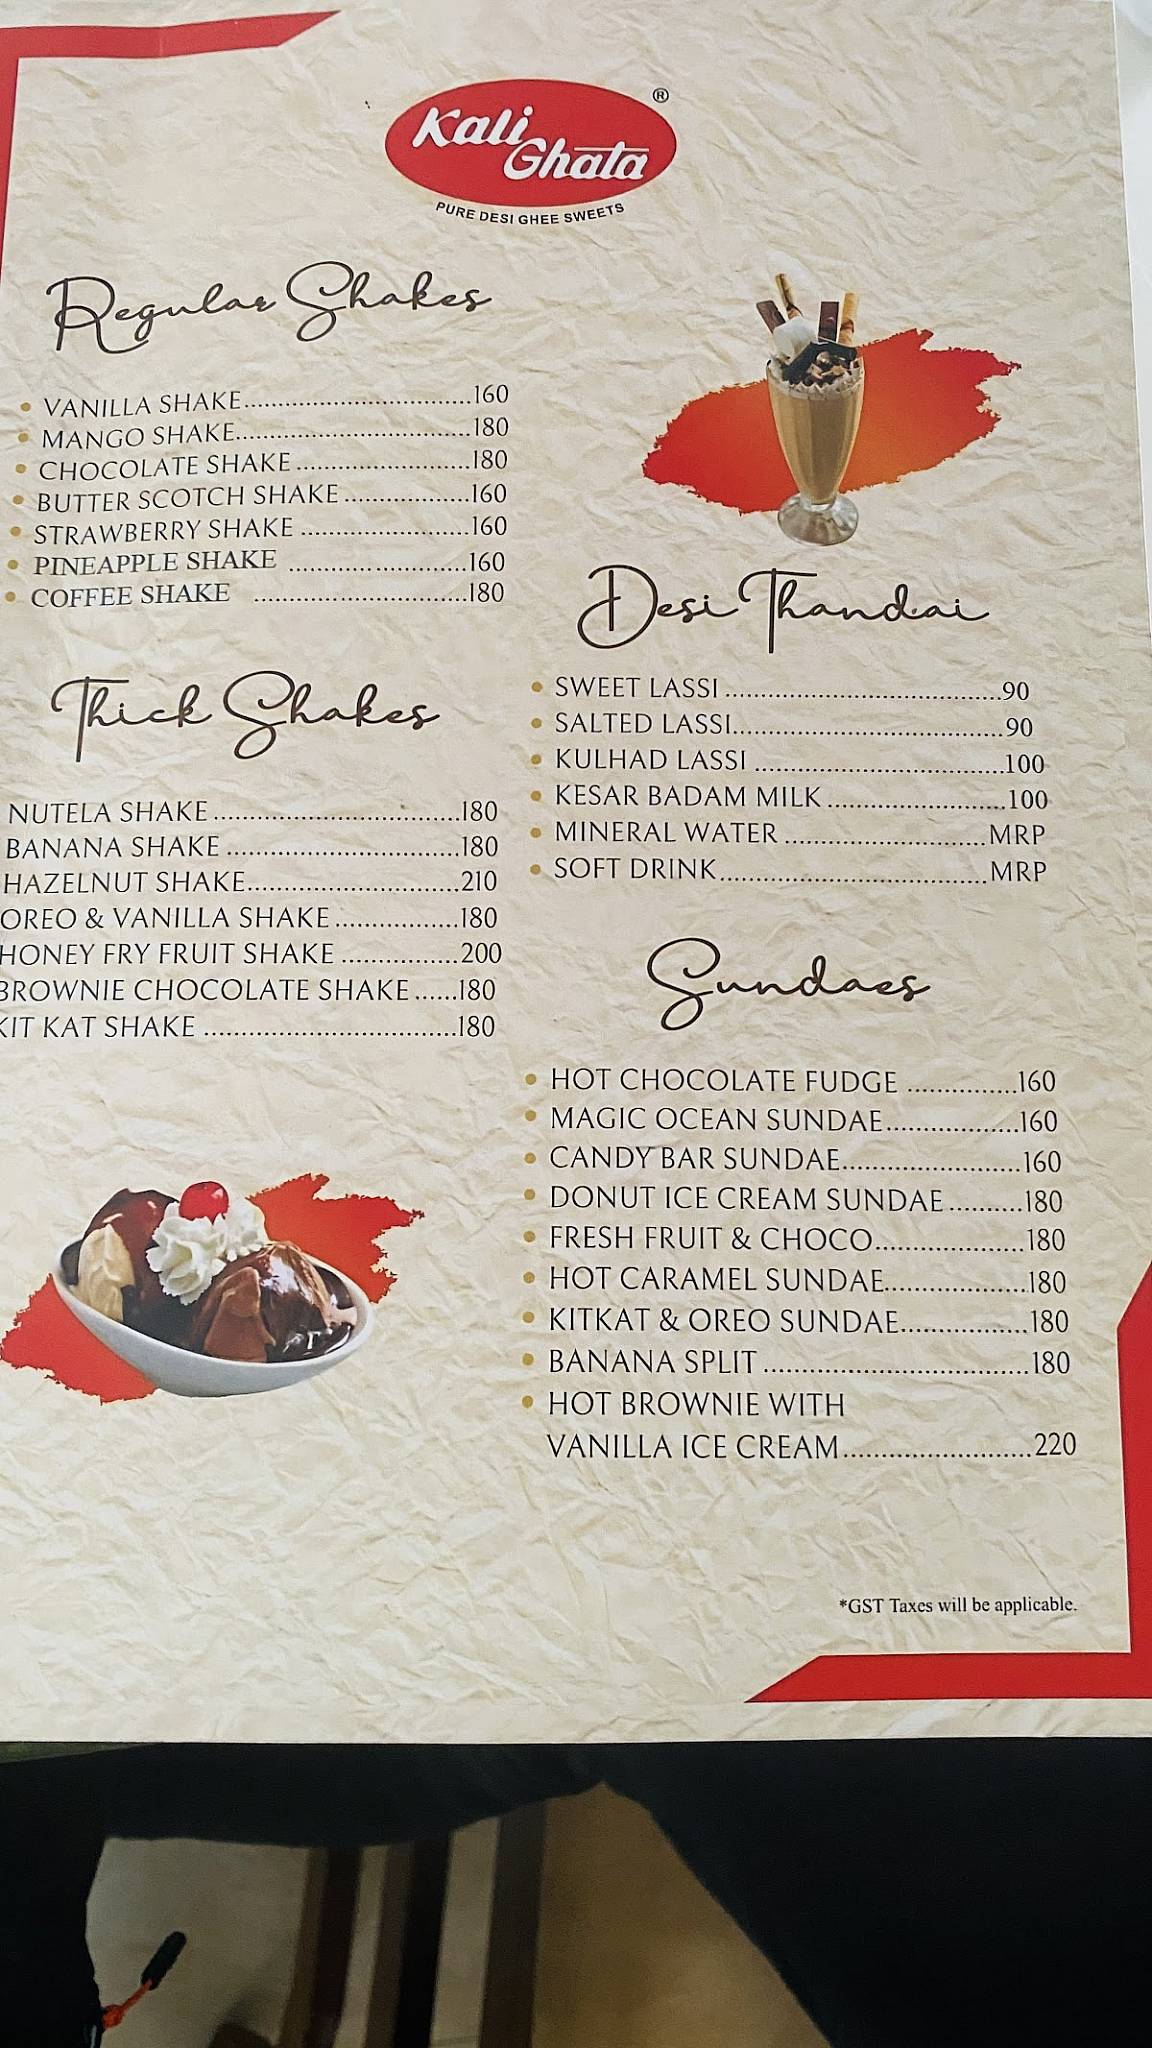 Kali
Ghata
®
PURE DESI GHEE SWEETS
Regular Shakes
VANILLA SHAKE..................................160
MANGO SHAKE...................................180
CHOCOLATE SHAKE..........................180
BUTTER SCOTCH SHAKE...................160
STRAWBERRY SHAKE.........................160
PINEAPPLE SHAKE ..........................160
COFFEE SHAKE ................................180
Thick Shakes
NUTELA SHAKE..................................180
BANANA SHAKE................................180
HAZELNUT SHAKE.............................210
OREO & VANILLA SHAKE.................180
HONEY FRY FRUIT SHAKE................200
BROWNIE CHOCOLATE SHAKE......180
KIT KAT SHAKE..................................180
Desi Thandai
SWEET LASSI......................................90
SALTED LASSI.....................................90
KULHAD LASSI..................................100
KESAR BADAM MILK........................100
MINERAL WATER............................MRP
SOFT DRINK.....................................MRP
Sundaes
HOT CHOCOLATE FUDGE...............160
MAGIC OCEAN SUNDAE..................160
CANDY BAR SUNDAE........................160
DONUT ICE CREAM SUNDAE..........180
FRESH FRUIT & CHOCO....................180
HOT CARAMEL SUNDAE...................180
KITKAT & OREO SUNDAE.................180
BANANA SPLIT....................................180
HOT BROWNIE WITH
VANILLA ICE CREAM.........................220
*GST Taxes will be applicable.